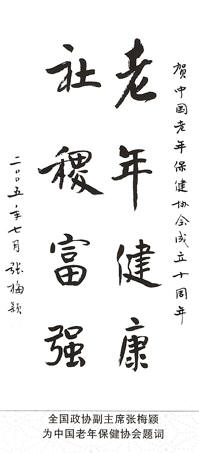 贺中国老年保健协会成立十周年
老年健康
社稷富强
二〇〇五年七月 张梅颖
全国政协副主席张梅颖
为中国老年保健协会题词